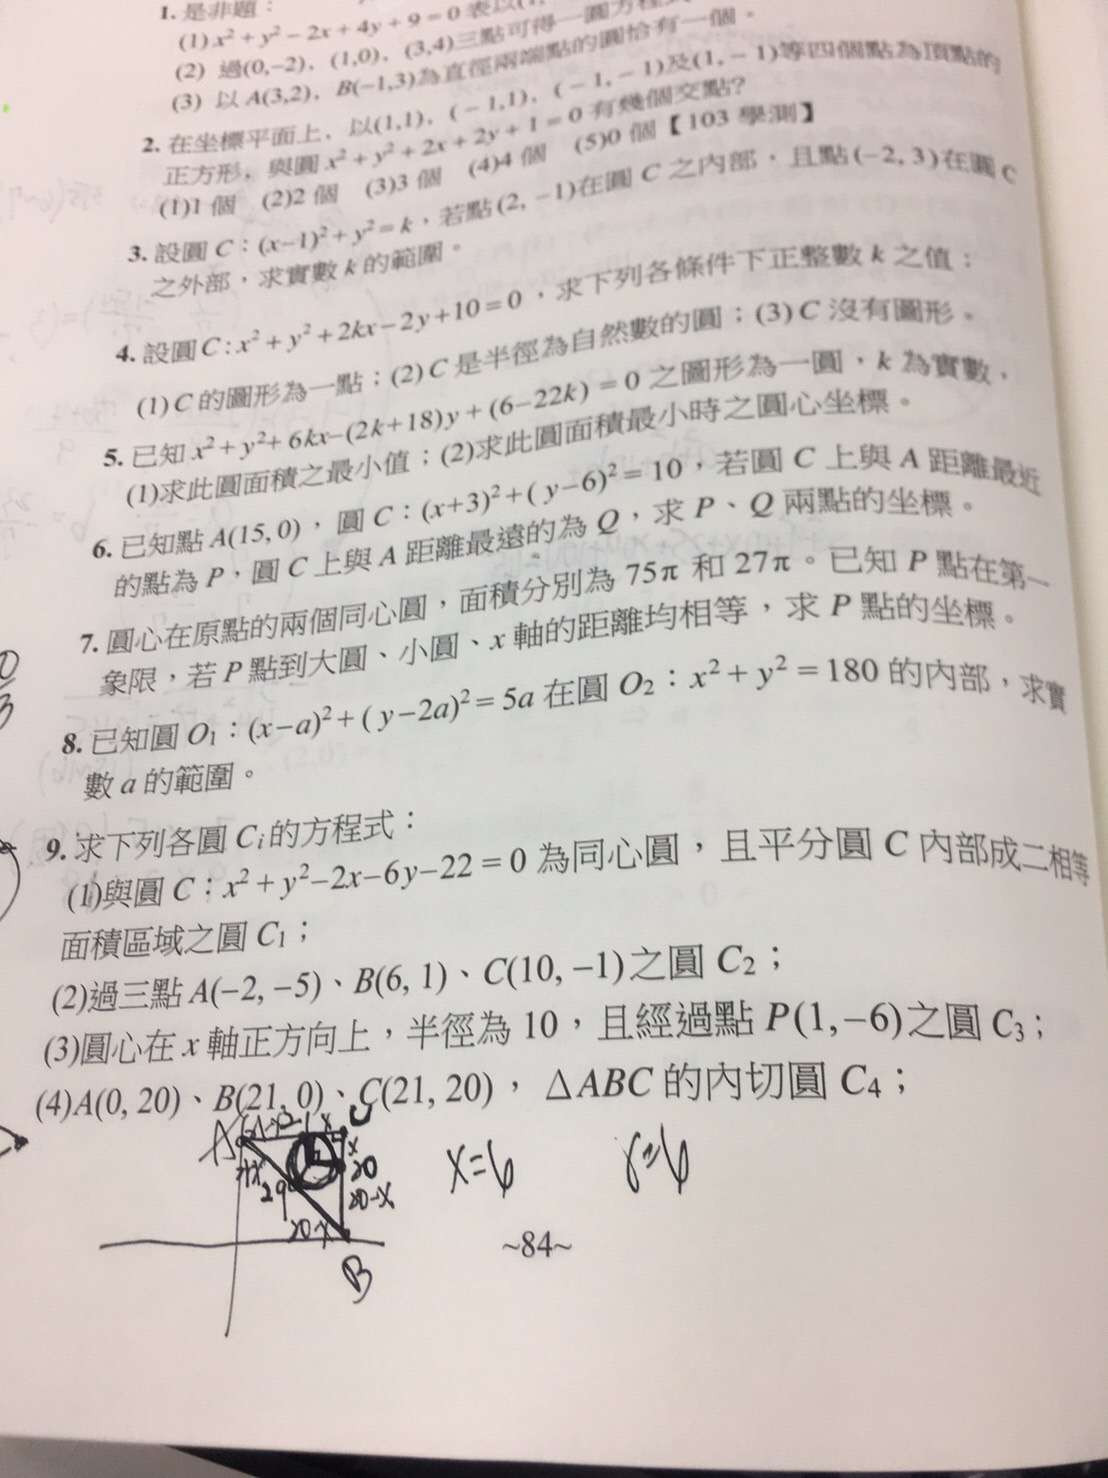 1. 是非題：
(1) x² + y² − 2x + 4y + 9 = 0 表以(1,
(2) 過(0,−2)、(1,0)、(3,4)三點可得一圓方程
(3) 以 A(3,2)、B(−1,3)為直徑兩端點的圓恰有一個。
2. 在坐標平面上，以(1,1)，(−1,1)，(−1,−1)及(1,−1)等四個點為頂點的
正方形，與圓 x² + y² + 2x + 2y + 1 = 0 有幾個交點?
(1)1 個 (2)2 個 (3)3 個 (4)4 個 (5)0 個【103 學測】
3. 設圓 C：(x−1)² + y² = k，若點(2, −1)在圓 C 之內部，且點(−2, 3)在圓 C
之外部，求實數 k 的範圍。
4. 設圓 C : x² + y² + 2kx − 2y + 10 = 0，求下列各條件下正整數 k 之值：
(1) C 的圖形為一點；(2) C 是半徑為自然數的圓；(3) C 沒有圖形。
5. 已知 x² + y² + 6kx − (2k+18)y + (6−22k) = 0 之圖形為一圓，k 為實數，
(1)求此圓面積之最小值；(2)求此圓面積最小時之圓心坐標。
6. 已知點 A(15, 0)，圓 C：(x+3)² + (y−6)² = 10，若圓 C 上與 A 距離最近
的點為 P，圓 C 上與 A 距離最遠的為 Q，求 P、Q 兩點的坐標。
7. 圓心在原點的兩個同心圓，面積分別為 75π 和 27π。已知 P 點在第一
象限，若 P 點到大圓、小圓、x 軸的距離均相等，求 P 點的坐標。
8. 已知圓 O₁：(x−a)² + (y−2a)² = 5a 在圓 O₂：x² + y² = 180 的內部，求實
數 a 的範圍。
9. 求下列各圓 Cᵢ 的方程式：
(1)與圓 C：x² + y² − 2x − 6y − 22 = 0 為同心圓，且平分圓 C 內部成二相等
面積區域之圓 C₁；
(2)過三點 A(−2, −5)、B(6, 1)、C(10, −1)之圓 C₂；
(3)圓心在 x 軸正方向上，半徑為 10，且經過點 P(1,−6)之圓 C₃；
(4)A(0, 20)、B(21, 0)、C(21, 20)，△ABC 的內切圓 C₄；
A
x
x
20
29
20−x
20−x
B
x=6 r=6
~84~